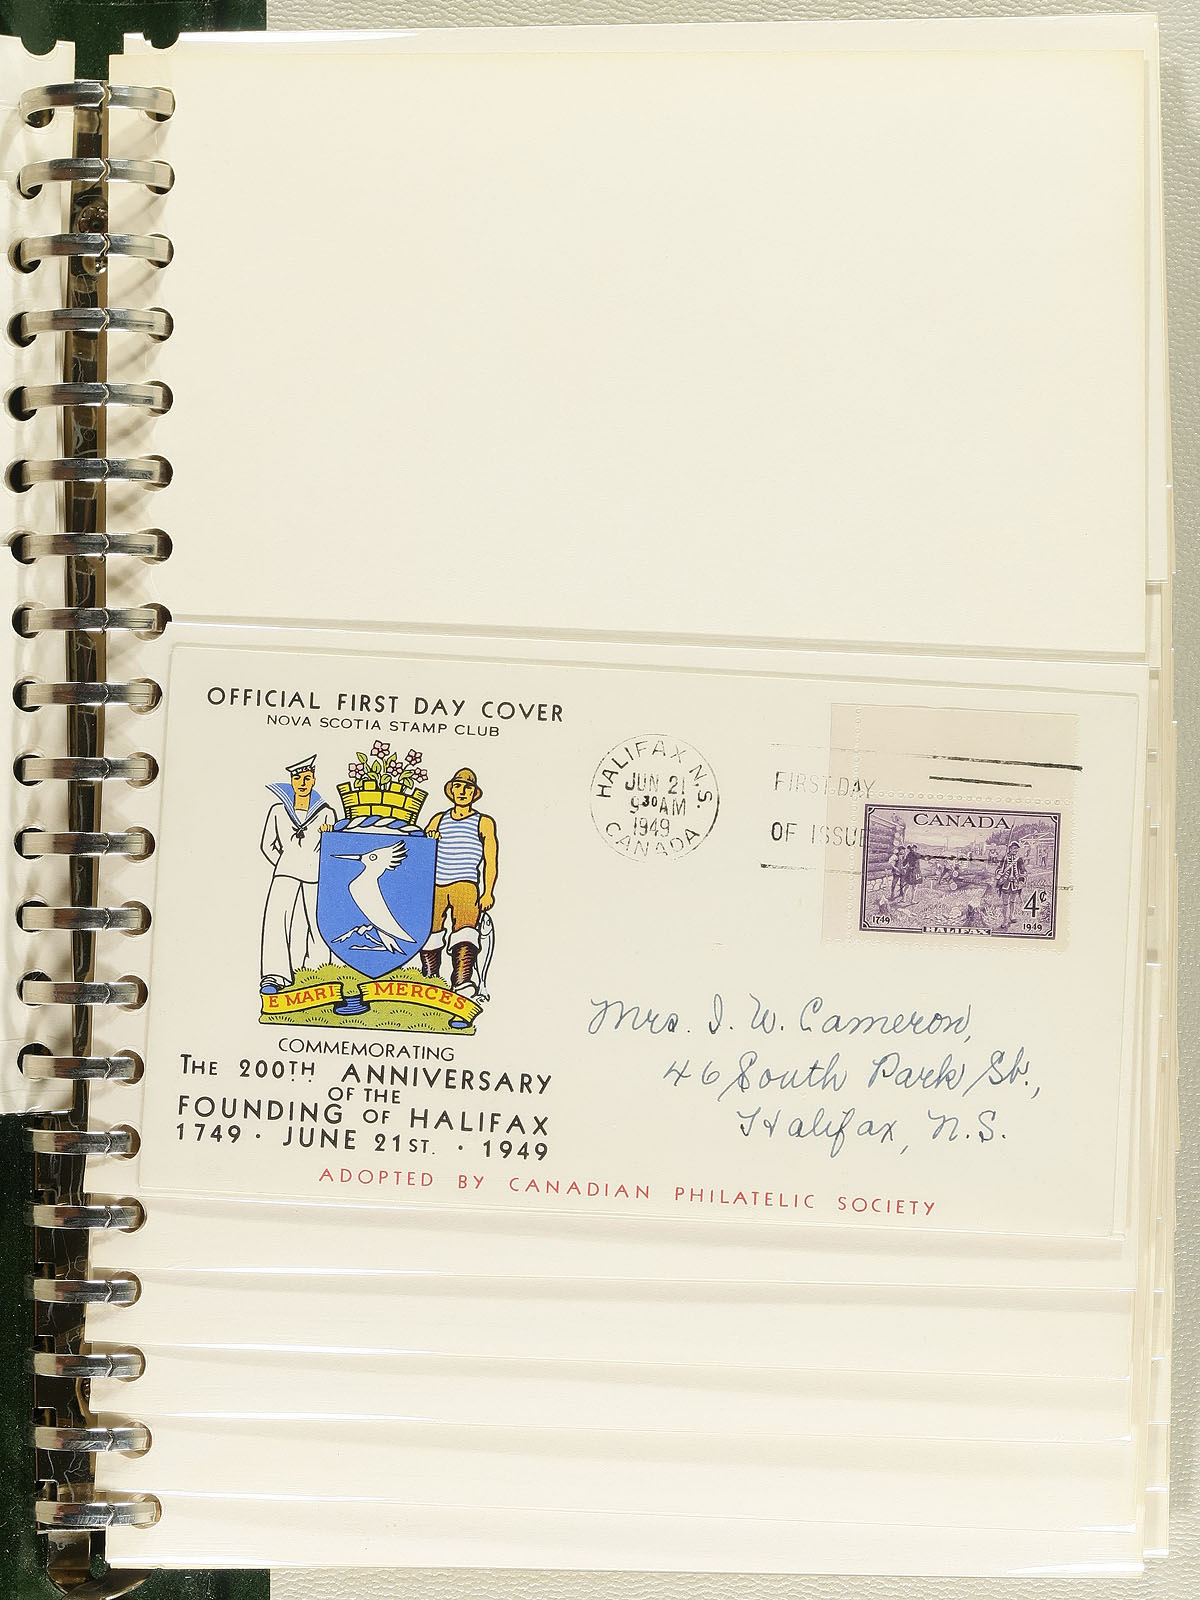 OFFICIAL FIRST DAY COVER
NOVA SCOTIA STAMP CLUB
E MARI MERCES
COMMEMORATING
THE 200TH ANNIVERSARY
OF THE
FOUNDING OF HALIFAX
1749 · JUNE 21ST. · 1949
ADOPTED BY CANADIAN PHILATELIC SOCIETY
HALIFAX N.S.
JUN 21
9 30 AM
1949
CANADA
FIRST DAY
OF ISSUE
CANADA
4¢
1749
HALIFAX
1949
Mrs. I. W. Cameron,
46 South Park St.,
Halifax, N.S.